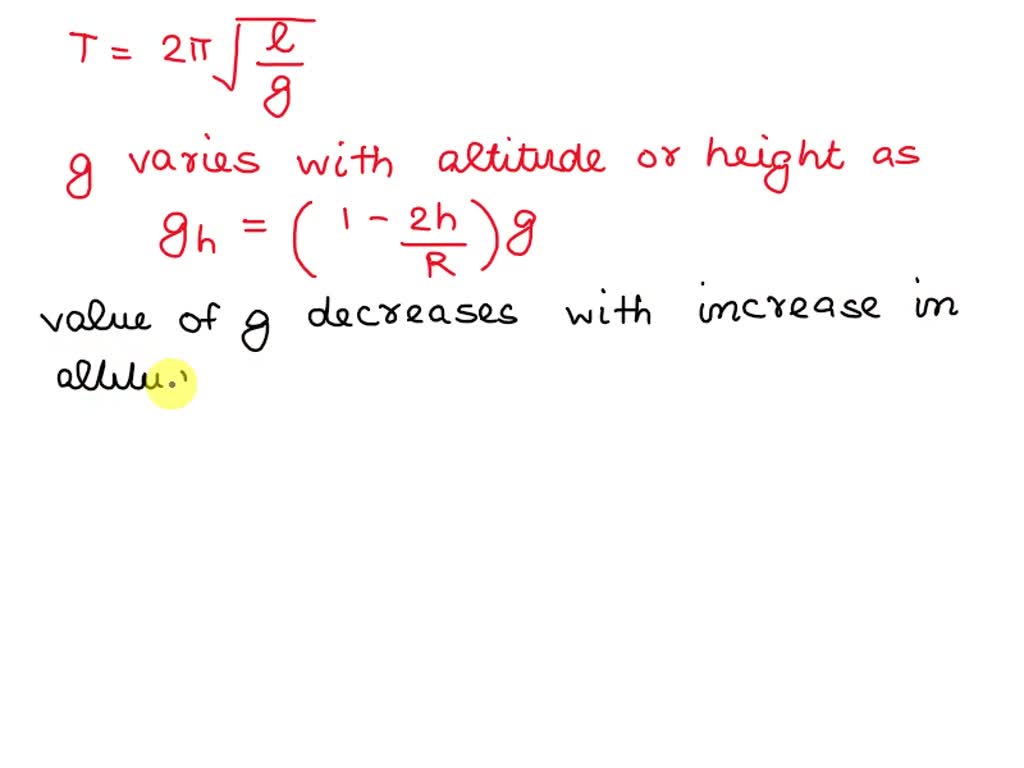 T = 2π√(l/g)
g varies with altitude or height as
gh = (1 - 2h/R)g
value of g decreases with increase in